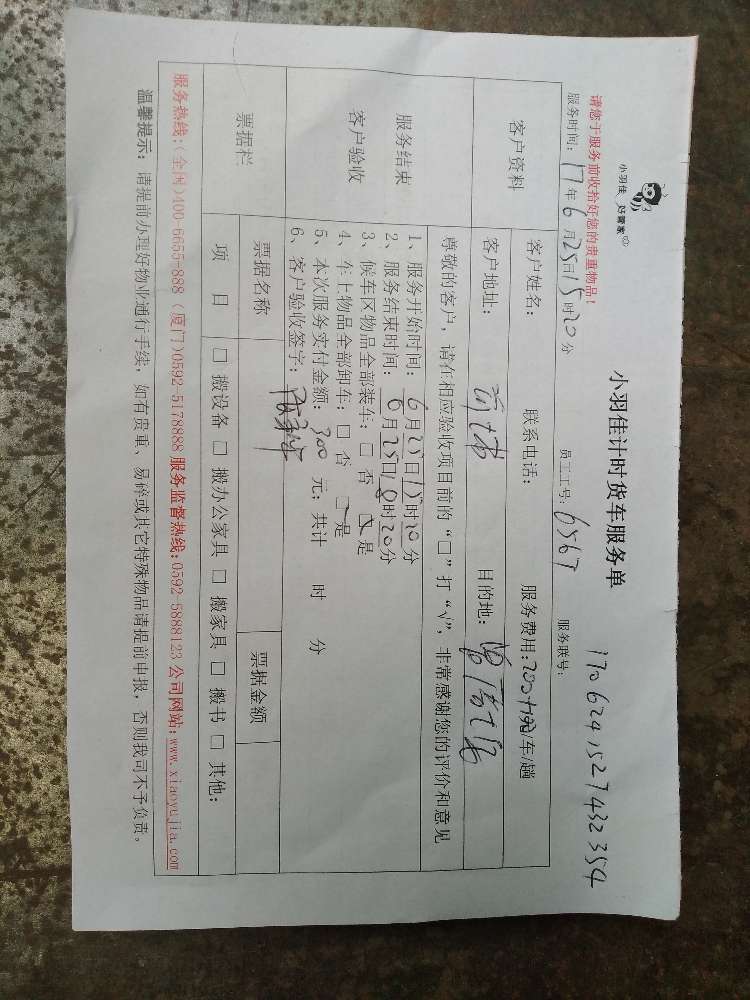 小羽佳 好管家
小羽佳计时货车服务单
1706241527432354
请您于服务前收拾好您的贵重物品！
服务时间：17年6月25日15时20分 员工工号：6567 服务联号：
客户资料
客户姓名： 联系电话： 服务费用：200 /车/趟
客户地址： 目的地：
尊敬的客户，请在相应验收项目前的“□”打“√”，非常感谢您的评价和意见
服务结束
客户验收
1、服务开始时间：6月25日15时20分
2、服务结束时间：6月25日18时20分
3、候车区物品全部装车：□ 否 □ 是
4、车上物品全部卸车：□ 否 □ 是
5、本次服务实付金额：300 元；共计 时 分
6、客户验收签字：
票据栏
票据名称 票据金额
项 目 □ 搬设备 □ 搬办公家具 □ 搬家具 □ 搬书 □ 其他：
服务热线:（全国)400-6655-888（厦门)0592-5178888 服务监督热线:0592-5888123 公司网站:www.xiaoyujia.com
温馨提示：请提前办理好物业通行手续，如有贵重、易碎或其它特殊物品请提前申报，否则我司不予负责。